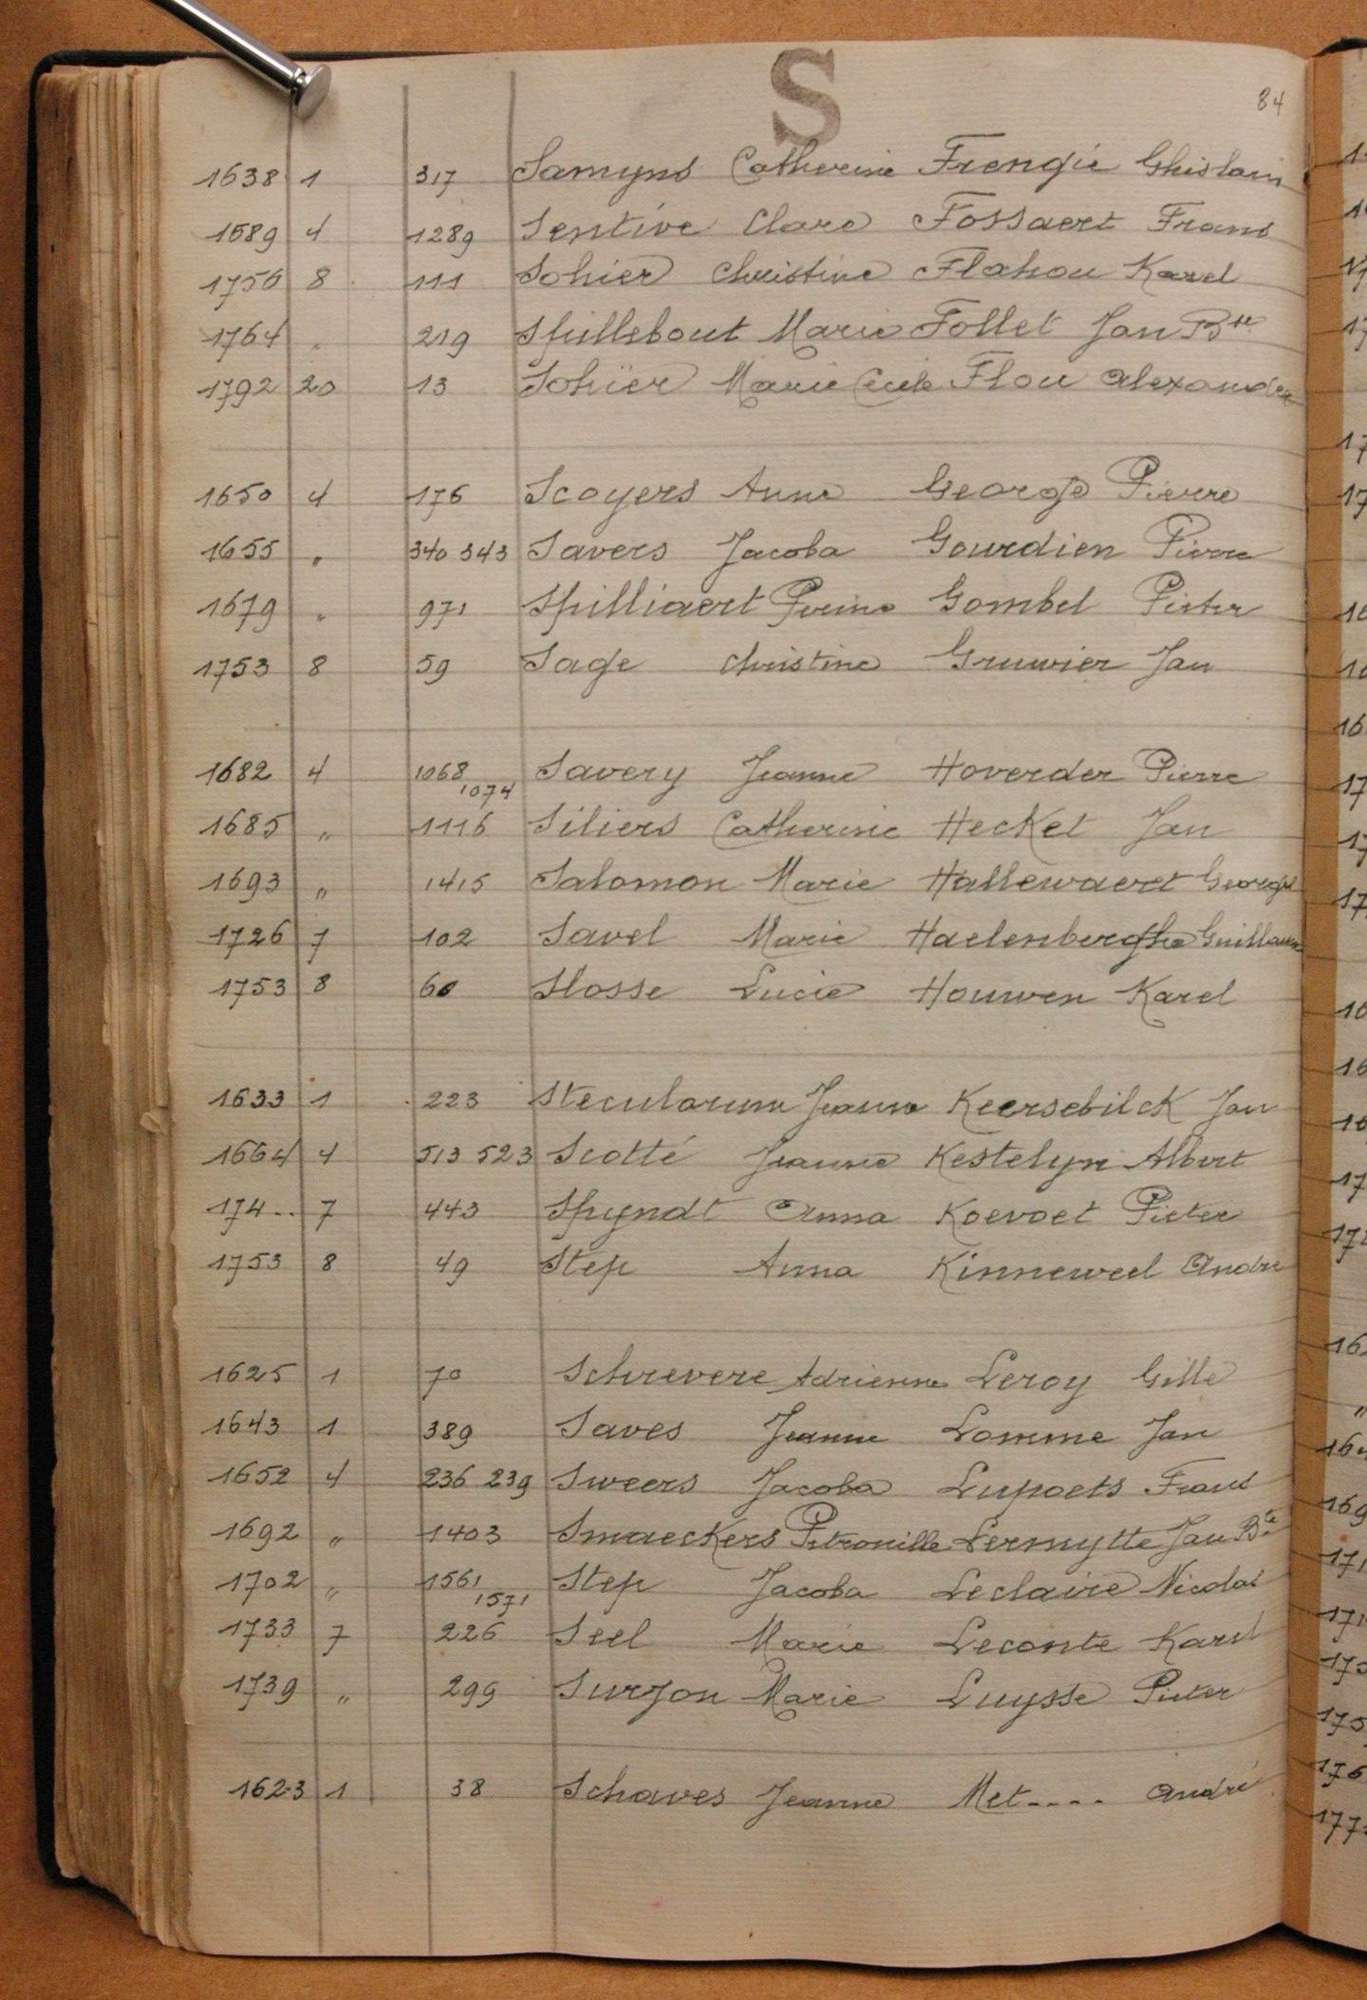 S
84
1638 1 317 Samyns Catherine Frengie Ghislain
1689 4 1289 Sentive Clare Fossaert Frans
1756 8 111 Sohier Christine Flahou Karel
1764 " 219 Spillebout Marie Follet Jan Bte
1792 20 13 Sohier Marie Cecile Flou Alexander
1650 4 176 Scoyers Anne George Pierre
1655 " 340 343 Savers Jacoba Gourdien Pierre
1679 " 971 Spilliaert Perine Gombel Pieter
1753 8 59 Sage Christine Gruwier Jan
1682 4 1068 1074 Savery Jeanne Hoverder Pierre
1685 " 1116 Siliers Catherine Hecket Jan
1693 " 1415 Salomon Marie Hallewaert George
1726 7 102 Savel Marie Haelenberghe Guillaume
1753 8 60 Slosse Lucie Houwen Karel
1633 1 223 Stecularum Jeanne Keersebilck Jan
1664 4 513 523 Scotté Jeanne Kestelyn Albert
174.. 7 443 Spyndt Anna Koevoet Pieter
1753 8 49 Step Anna Kinneweel Andre
1625 1 70 Schrevere Adrienne Leroy Gille
1643 1 389 Saves Jeanne Lomme Jan
1652 4 236 239 Sweers Jacoba Lupoets Frans
1692 " 1403 Smaeckers Petronille Lermytte Jan Bte
1702 " 1561 1571 Step Jacoba Leclaire Nicolas
1733 7 226 Seel Marie Leconte Karel
1739 " 299 Surzon Marie Luysse Pieter
1623 1 38 Schaves Jeanne Met---- André